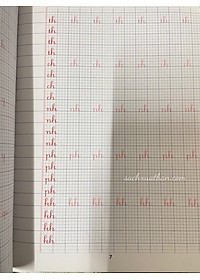 th th th th th th th
th
th
th
ch ch ch ch ch ch ch
ch
ch
ch
nh nh nh nh nh nh nh
nh
nh
nh
ph ph ph ph ph ph ph
ph
ph
ph
kh kh kh kh kh kh kh
kh
kh
kh
7